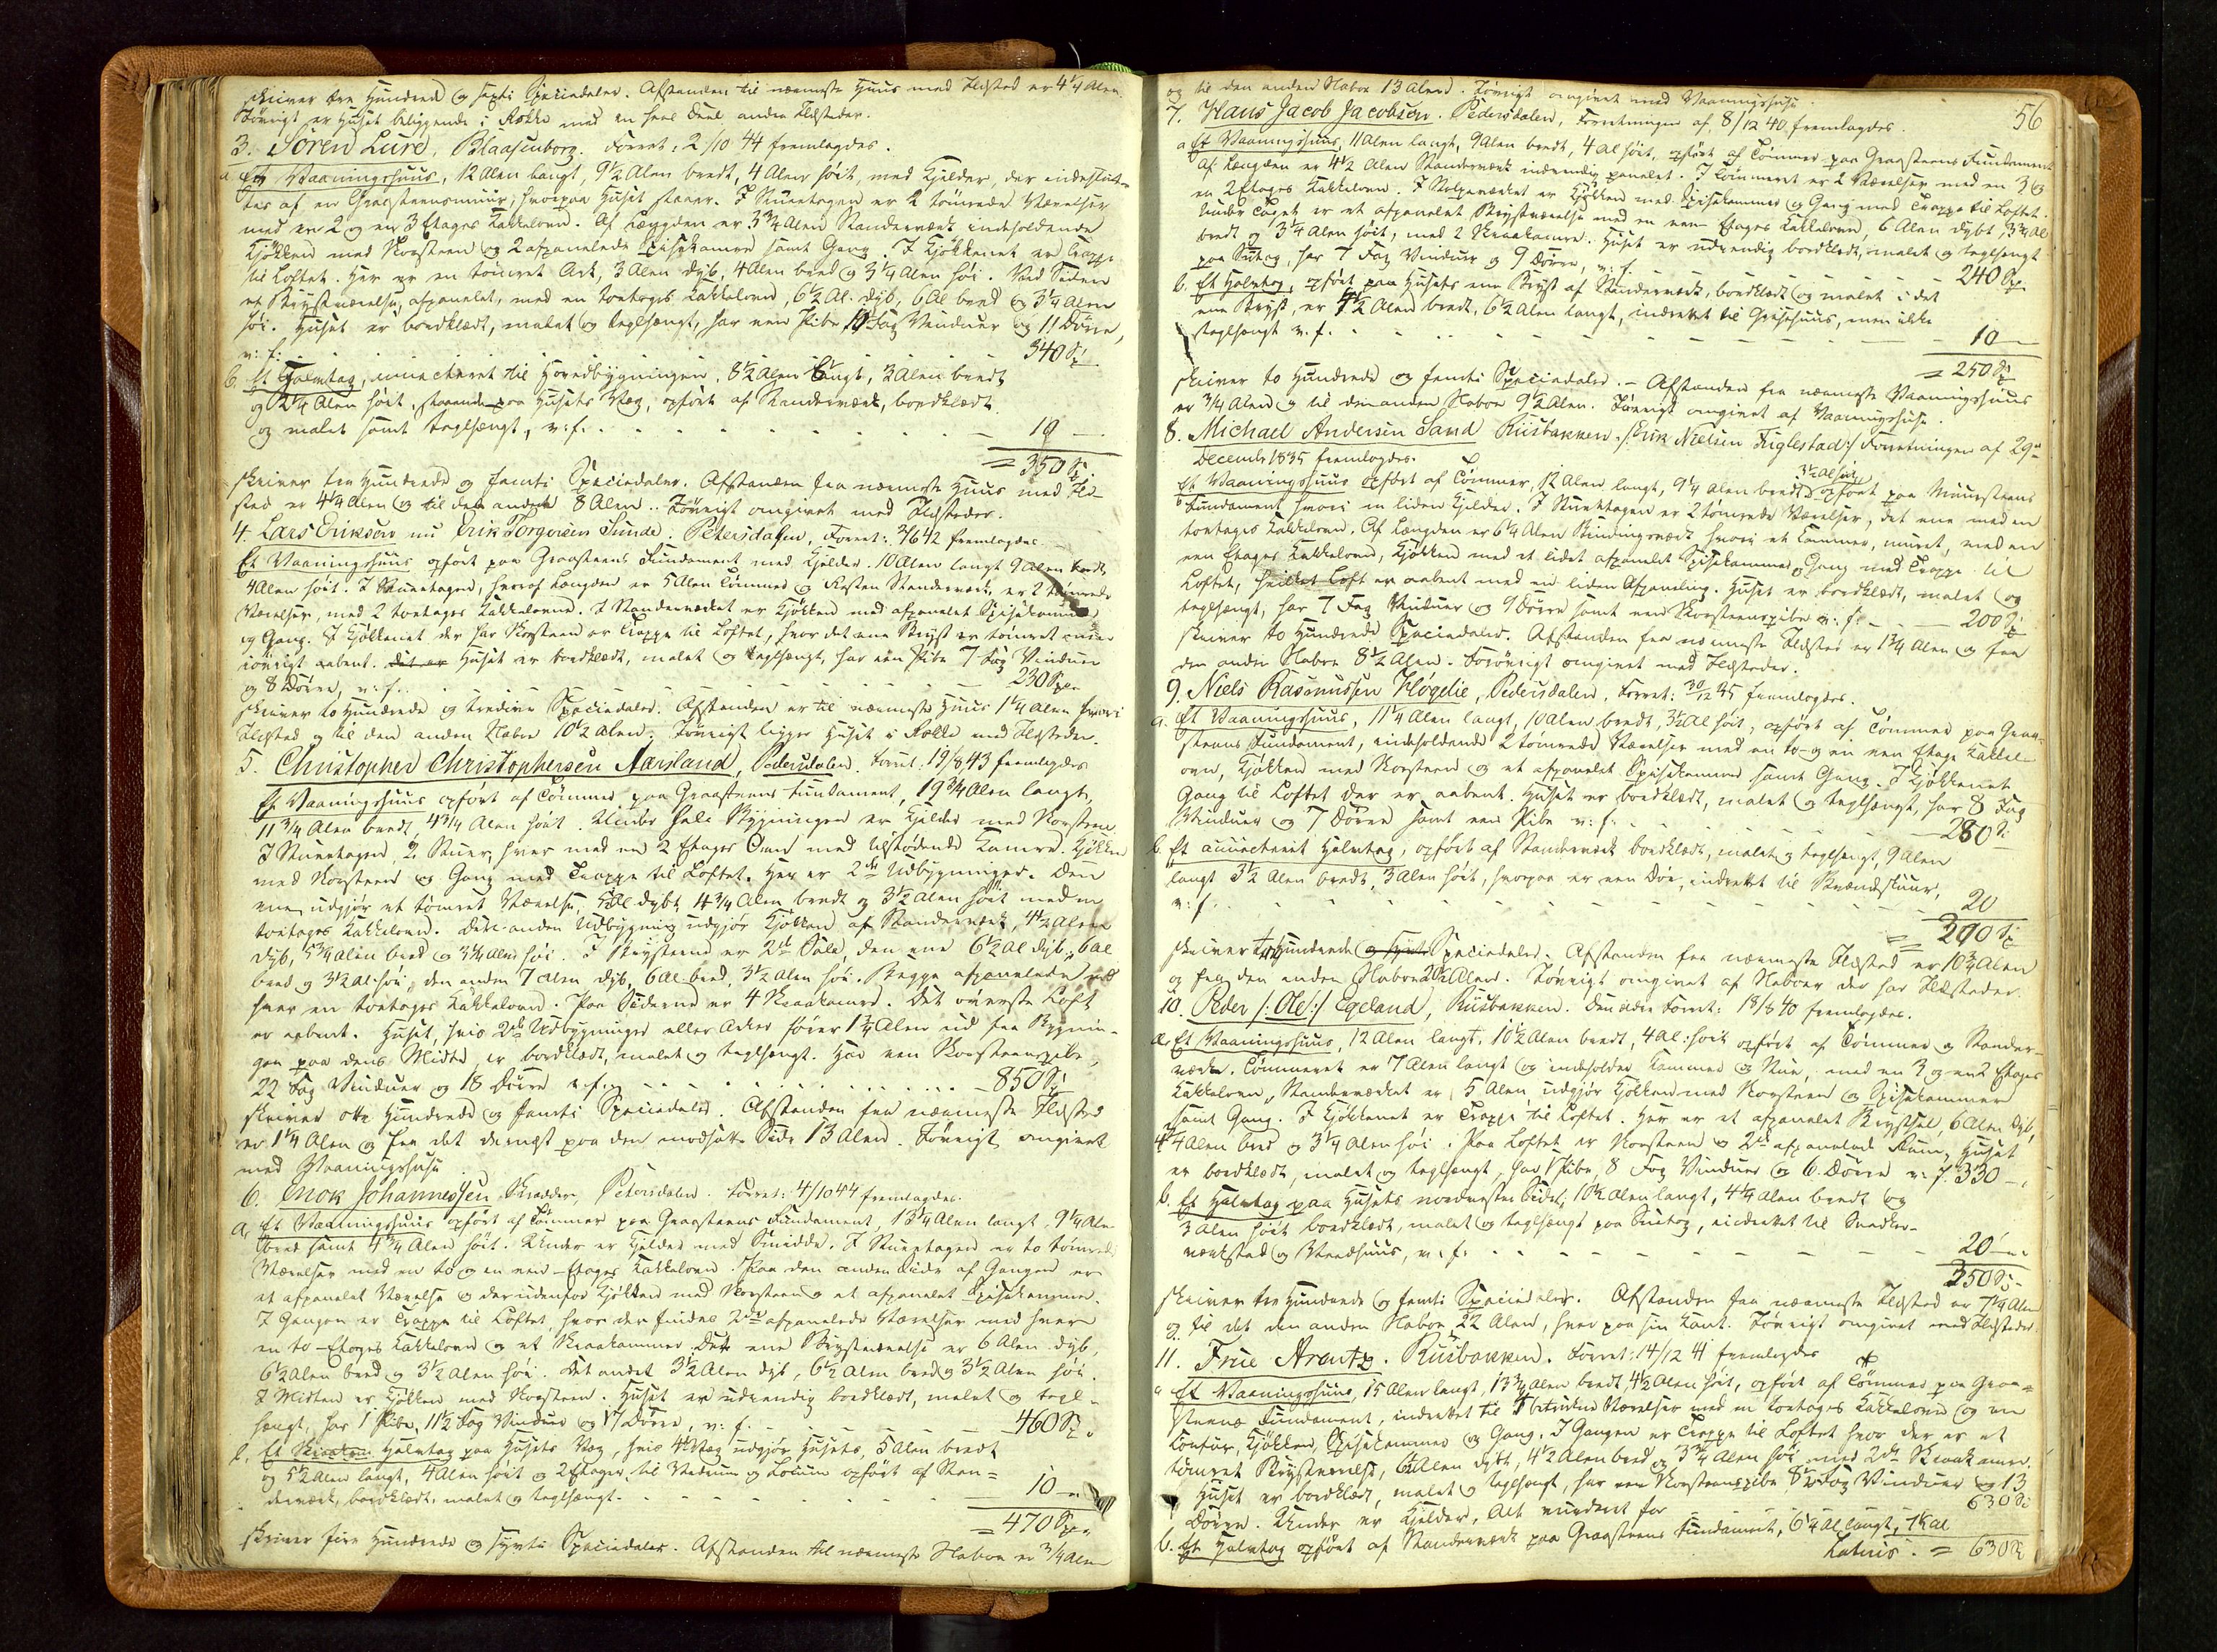 skriver tre Hundrede og sexti Speciedaler. Afstanden til nærmeste Huus med Ildsted er 4 1/4 Alen.
Iøvrigt er Huset beliggende i Række med en heel Deel andre Ildsteder.
3. Søren Lure, Blaasenborg. Forret: 2/10 44 fremlagdes.
a Et Vaaningshuus, 12 Alen langt, 9 1/2 Alen bredt, 4 Alen høit, med Kjelder, der indeslut-
tes af en Graasteensmuur, hvorpaa Huset staaer. I Stueetagen er 2 tømrede Værelser
med en 2 og en 3 Etages Kakkelovn. Af Længden er 3 3/4 Alen Standerværk indeholdende
Kjøkken med Skorsteen og 2 afpanelede Spisekamre samt Gang. I Kjøkkenet er Trappe
til Loftet. Her er en tømret Ark, 3 Alen dyb, 4 Alen bred og 3 1/4 Alen høi. Ved Siden
et Brystværelse, afpanelet, med en toetages Kakkelovn, 6 1/2 Al. dyb, 6 Al bred og 3 1/4 Alen
høi. Huset er bordklædt, malet og teglhængt, har een Pibe 10 Fag Vinduer og 11 Døre,
v: f: 340 Sp
b. Et Halvtag, annecteret til Hovedbygningen, 8 1/2 Alen langt, 3 Alen bredt
og 2 1/4 Alen høit, staaende paa Husets Væg, opført af Standerværk, bordklædt
og malet samt teglhængt, v: f. 10 —
= 350 Sp
skriver tre Hundrede og femti Speciedaler. Afstanden fra nærmeste Huus med Ild-
sted er 4 1/4 Alen og til den anden 8 Alen. Iøvrigt omgivet med Ildsteder.
4. Lars Eriksen nu Erik Torgersen Sunde. Petersdalen, Forret: 3/6 42 fremlagdes.
Et Vaaningshuus opført paa Graasteens Fundament med Kjelder. 10 Alen langt 9 Alen bredt
4 Alen høit. I Stueetagen, hvoraf Længden er 5 Alen Tømmer og Resten Standerværk, er 2 tømrede
Værelser, med 2 toetages Kakkelovne. I Standerværket er Kjøkken med afpanelet Spisekammer
og Gang. I Kjøkkenet der har Skorsteen er Trappe til Loftet, hvor det ene Bryst er tømret men
iøvrigt aabent. Huset er bordklædt, malet og teglhængt, har een Pibe 7 Fag Vinduer
og 8 Døre, v: f. 230 Spd
skriver to Hundrede og tredive Speciedaler. Afstanden er til nærmeste Huus 1 1/4 Alen hvori
Ildsted og til den anden Naboe 10 1/2 Alen. Iøvrigt ligger Huset i Række med Ildsteder.
5. Christopher Christophersen Aarsland, Pedersdalen. Forret: 19/8 43 fremlagdes
Et Vaaningshuus opført af Tømmer paa Graasteens Fundament, 19 3/4 Alen langt,
11 3/4 Alen bredt, 4 3/4 Alen høit. Under hele Bygningen er Kjelder med Skorsteen
I Stueetagen, 2 Stuer, hver med en 2 Etages Ovn med tilstødende Kamre. Kjøkken
med Skorsteen og Gang med Trappe til Loftet. Her er 2de Udbygninger. Den
ene udgjør et tømret Værelse, 5 Al. dybt, 4 3/4 Alen bredt og 3 1/2 Alen høit med en
toetages Kakkelovn. Den anden Udbygning udgjør Kjøkken af Standerværk, 4 1/2 Alen
dyb, 5 3/4 Alen bred og 3 3/4 Alen høi. I Brystene er 2de Sale, den ene 6 1/2 Al dyb, 6 Al
bred og 3 1/2 Al. høi, den anden 7 Alen dyb, 6 Al. bred, 3 1/2 Alen høi. Begge afpanelede med
hver en toetages Kakkelovn. Paa Siderne er 4 Skraakamre. Det øverste Loft
er aabent. Huset, hvis 2de Udbygninger eller Arker staaer 1 3/4 Alen ud fra Bygnin-
gen paa dens Midte, er bordklædt, malet og teglhængt. Har een Skorsteenspibe,
22 Fag Vinduer og 18 Døre v. f. 850 Sp
skriver otte Hundrede og femti Speciedaler. Afstanden fra nærmeste Ildsted
er 1 1/4 Alen og fra det dernæst paa den modsatte Side 13 Alen. Iøvrigt omgivet
med Vaaningshuse.
6. Enok Johannessen Skrædder, Petersdalen. Forret: 4/10 44 fremlagdes.
a, Et Vaaningshuus opført af Tømmer paa Graasteens Fundament, 13 1/4 Alen langt, 9 1/4 Alen
bred samt 4 3/4 Alen høit. Under er Kjelder med Smidde. I Stueetagen er to tømrede
Værelser med en to og en een-Etages Kakkelovn. Paa den anden Side af Gangen er
et afpanelet Værelse og derudenfor Kjøkken med Skorsteen og et afpanelet Spisekammer.
I Gangen er Trappe til Loftet, hvor der findes 2de afpanelede Værelser med hver
en to-Etages Kakkelovn og et Skraakammer. Det ene Brystværelse er 6 Alen dyb,
6 1/2 Alen bred og 3 1/2 Alen høi. Det andet 3 1/2 Alen dyb, 6 1/2 Alen bred og 3 1/2 Alen høi.
I Midten er Kjøkken med Skorsteen. Huset er udvendig bordklædt, malet og tegl-
hængt, har 1 Pibe, 11 1/2 Fag Vinduer og 17 Døre, v: f. 460 Sp
b. Et Halvtag paa Husets Væg, hvis 4de Væg udgjør Husets, 5 Alen bredt
og 5 1/2 Alen langt, 4 Alen høit og 2 Etager til Vedrum og Locum opført af Stan-
derværk, bordklædt, malet og teglhængt. 10 —
= 470 Sp
skriver fire Hundrede og sytti Speciedaler. Afstanden til nærmeste Naboe er 3/4 Alen
56
og til den anden Naboe 13 Alen. Iøvrigt omgivet med Vaaningshuse.
7. Hans Jacob Jacobsen. Pedersdalen, Forretningen af 8/12 40 fremlagdes.
a Et Vaaningshuus, 11 Alen langt, 9 Alen bredt, 4 Al høit, opført af Tømmer paa Graasteens Fundament
Af Længden er 4 1/2 Alen Standerværk indvendig panelet. I Tømmeret er 2 Værelser med en 3 og
en 2 Etages Kakkelovn. I Stolpeværket er Kjøkken med Spisekammer og Gang med Trappe til Loftet.
Under Taget er et afpanelet Brystværelse med en een Etages Kakkelovn, 6 Alen dybt, 3 3/4 Al
bredt og 3 1/4 Alen høit, med 2 Skraakamre. Huset er udvendig bordklædt, malet og teglhængt
paa Sutag, har 7 Fag Vinduer og 9 Døre, v: f. 240 Sp
b. Et Halvtag, opført paa Husets ene Bryst af Standerværk, bordklædt og malet i det
ene Bryst, er 4 1/2 Alen bredt, 6 1/2 Alen langt, indrettet til Grisehuus, men ikke
teglhængt v. f. 10 —
= 250 Sp
skriver to Hundrede og femti Speciedaler. – Afstanden fra nærmeste Vaaningshuus
er 3/4 Alen og til den anden Naboe 9 1/2 Alen. Iøvrigt omgivet af Vaaningshuse.
8. Michael Andersen Sand Riisbakken /: Erik Nielsen Tiglestad :/ Forretningen af 29de
December 1835 fremlagdes.
Et Vaaningshuus opført af Tømmer, 12 Alen langt, 9 1/4 Alen bredt, 3 1/2 Al høit opført paa Muursteens
Fundament hvori en liden Kjelder. I Stueetagen er 2 tømrede Værelser, det ene med en
toetages Kakkelovn. Af Længden er 6 1/4 Alen Bindingsværk hvori et Kammer, muret, med en
een Etages Kakkelovn, Kjøkken med et lidet afpanelet Spisekammer, Gang med Trappe til
Loftet, hvilket Loft er aabent med en liden Afpaneling. Huset er bordklædt, malet og
teglhængt, har 7 Fag Vinduer og 9 Døre samt een Skorsteenspibe v: f. 200 Sp
skriver to Hundrede Speciedaler. Afstanden fra nærmeste Ildsted er 1 3/4 Alen og fra
den anden Naboe 8 1/2 Alen. Forøvrigt omgivet med Ildsteder.
9. Niels Rasmussen Høgelie, Pedersdalen. Forret: 30/12 45 fremlagdes.
a. Et Vaaningshuus, 11 1/4 Alen langt, 10 Alen bredt, 3 1/2 Al høit, opført af Tømmer paa Graa-
steens Fundament, indeholdende 2 tømrede Værelser med en to- og en een Etage Kakkel-
ovn, Kjøkken med Skorsteen og et afpanelet Spisekammer samt Gang. I Kjøkkenet
Gang til Loftet der er aabent. Huset er bordklædt, malet og teglhængt, har 8 Fag
Vinduer og 7 Døre samt een Pibe v: f. 280 Sp
b. Et annecteret Halvtag, opført af Standerværk bordklædt, malet og teglhængt, 9 Alen
langt 3 1/2 Alen bredt, 3 Alen høit, hvorpaa er een Dør, indrettet til Brændeskuur,
v: f. 20
= 200 Sp
skriver to Hundrede Speciedaler. Afstanden fra nærmeste Ildsted er 10 3/4 Alen
og fra den anden Naboe 20 1/2 Alen. Iøvrigt omgivet af Naboer der har Ildsteder.
10. Peder /: Ole :/ Egeland, Riisbakken. Den ældre Forret: 18/8 40 fremlagdes.
a. Et Vaaningshuus, 12 Alen langt, 10 1/2 Alen bredt, 4 Al: høit opført af Tømmer og Stander-
værk. Tømmeret er 7 Alen langt og indeholder Kammer og Stue, med en 3 og en 2 Etages
Kakkelovn, Standerværket er 5 Alen, udgjør Kjøkken med Skorsteen og Spisekammer
samt Gang. I Kjøkkenet er Trappe til Loftet. Her er et afpanelet Brystsal, 6 Alen dyb,
4 1/4 Alen bred og 3 1/4 Alen høi. Paa Loftet er Skorsteen og 2de afpanelede Rum. Huset
er bordklædt, malet og teglhængt, har 1 Pibe, 8 Fag Vinduer og 6 Døre v: f. 330 —
b. Et Halvtag paa Husets nordvestre Side, 10 1/2 Alen langt, 4 1/4 Alen bredt og
3 Alen høit bordklædt, malet og teglhængt paa Sutag, indrettet til Snedker-
værksted og Vedhuus, v. f. 20 —
350 Sp
skriver tre Hundrede og femti Speciedaler. Afstanden fra nærmeste Ildsted er 7 1/4 Alen
og til det den anden Naboe 22 Alen, hver paa sin Kant. Iøvrigt omgivet med Ildsteder.
11. Frue Arentz. Riisbakken. Forret: 14/12 41 fremlagdes
a Et Vaaningshuus, 15 Alen langt, 13 3/4 Alen bredt, 4 1/2 Alen høit, opført af Tømmer paa Graa-
steens Fundament, indrettet til Værelser med en toetages Kakkelovn og en
Kontur, Kjøkken, Spisekammer og Gang. I Gangen er Trappe til Loftet hvor der er et
tømret Brystværelse, 6 1/2 Alen dybt, 4 1/2 Alen bred og 3 3/4 Alen høi med 2de Skraakamre.
Huset er bordklædt, malet og teglhængt, har een Skorsteenspibe, 8 1/2 Fag Vinduer og 13
Døre. Under er Kjelder. Alt vurderet for 630 Sp
b. Et Halvtag opført af Standerværk paa Graasteens Fundament, 6 1/4 Al langt, 7 1/4 Al
Lateris. = 630 Sp